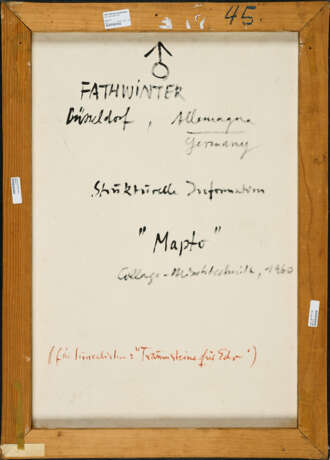 45.
FATHWINTER
Düsseldorf, Allemagna
Germany
Strukturelle Information
"Mapto"
Collage-Mischtechnik, 1960
"Traumsteine für